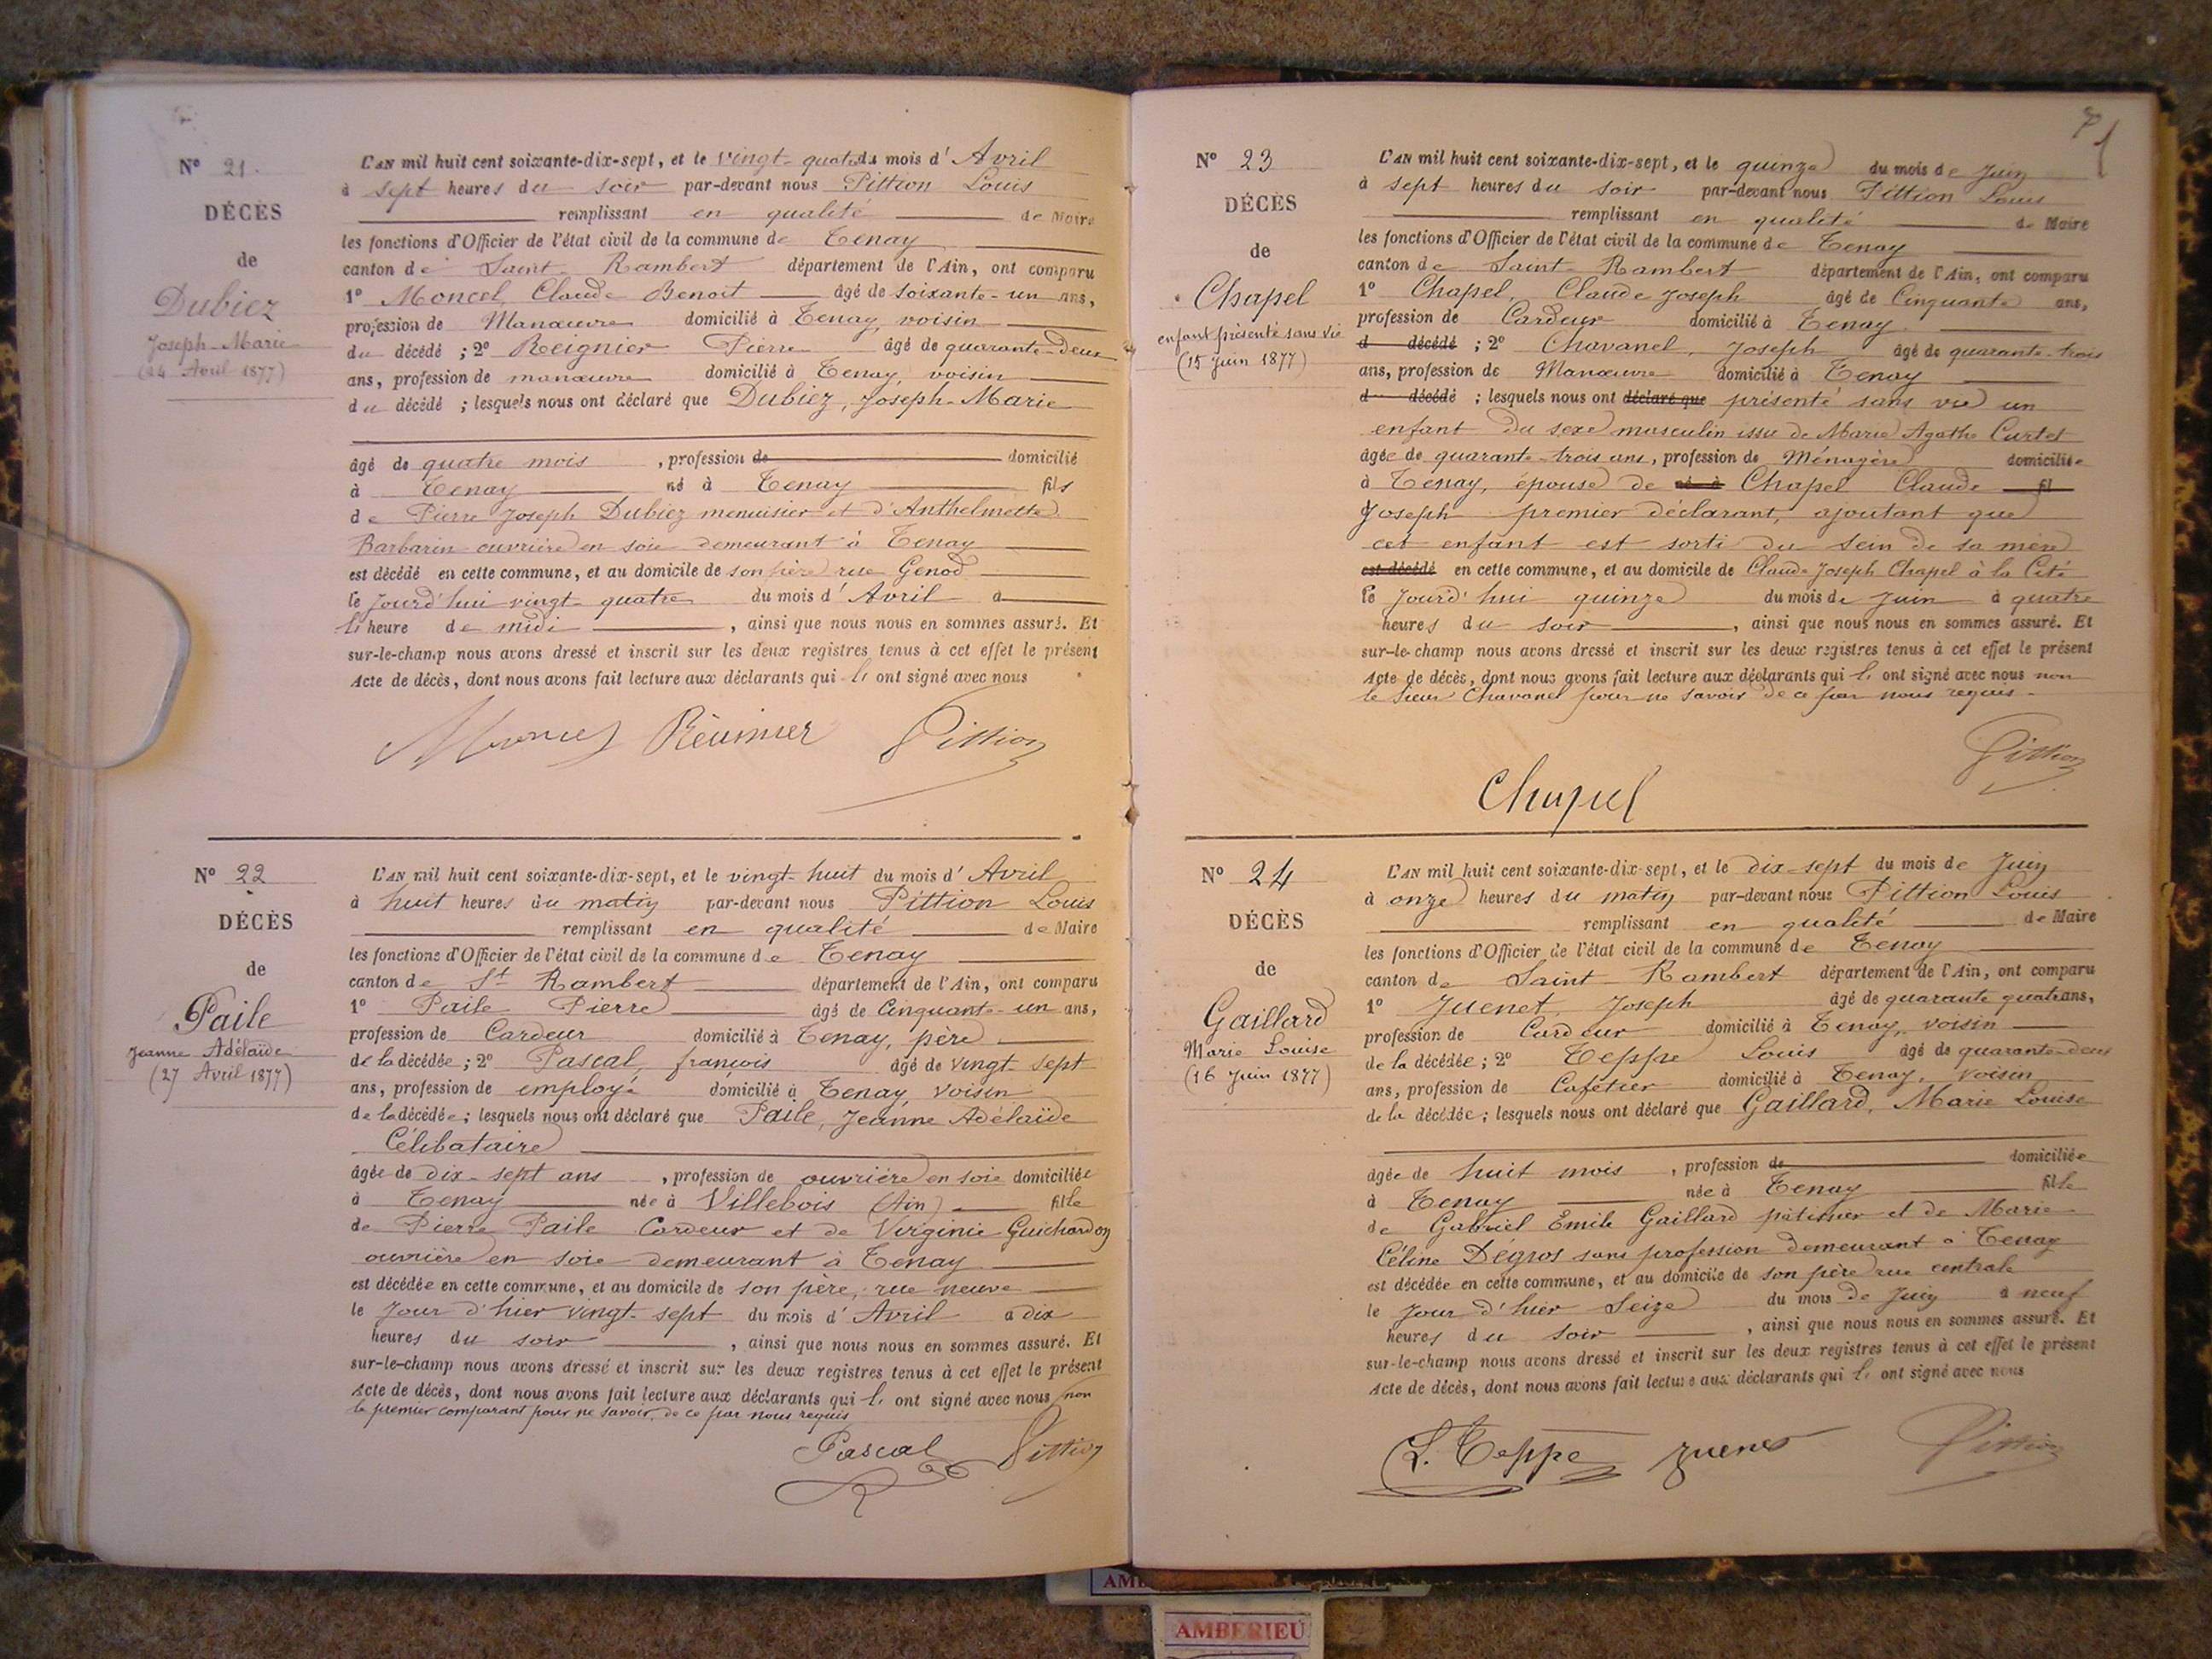 Nº 21.
DÉCÈS
de
Dubiez
Joseph-Marie
(24 Avril 1877)
L'AN mil huit cent soixante-dix-sept, et le vingt-quatre du mois d'Avril
à sept heures du soir par-devant nous Pittion Louis
remplissant en qualité de Maire
les fonctions d'Officier de l'état civil de la commune de Tenay
canton de Saint-Rambert département de l'Ain, ont comparu
1º Moncel, Claude Benoit âgé de soixante-un ans,
profession de Manœuvre domicilié à Tenay, voisin
du décédé ; 2º Reignier Pierre âgé de quarante-deux
ans, profession de manœuvre domicilié à Tenay, voisin
du décédé ; lesquels nous ont déclaré que Dubiez, Joseph-Marie
âgé de quatre mois , profession de domicilié
à Tenay né à Tenay fils
de Pierre Joseph Dubiez menuisier et d'Anthelmette
Barbarin ouvrière en soie demeurant à Tenay
est décédé en cette commune, et au domicile de son père rue Genod
le jourd'hui vingt-quatre du mois d'Avril à
l' heure de midi , ainsi que nous nous en sommes assuré. Et
sur-le-champ nous avons dressé et inscrit sur les deux registres tenus à cet effet le présent
Acte de décès, dont nous avons fait lecture aux déclarants qui l' ont signé avec nous
Moncel Réunier Pittion
Nº 22
DÉCÈS
de
Paile
Jeanne Adélaïde
(27 Avril 1877)
L'AN mil huit cent soixante-dix-sept, et le vingt-huit du mois d'Avril
à huit heures du matin par-devant nous Pittion Louis
remplissant en qualité de Maire
les fonctions d'Officier de l'état civil de la commune de Tenay
canton de St Rambert département de l'Ain, ont comparu
1º Paile Pierre âgé de Cinquante-un ans,
profession de Cardeur domicilié à Tenay, père
de la décédée ; 2º Pascal, françois âgé de vingt-sept
ans, profession de employé domicilié à Tenay, voisin
de la décédée ; lesquels nous ont déclaré que Paile, Jeanne Adélaïde
Célibataire
âgée de dix-sept ans , profession de ouvrière en soie domiciliée
à Tenay née à Villebois (Ain) fille
de Pierre Paile Cardeur et de Virginie Guichardon
ouvrière en soie demeurant à Tenay
est décédée en cette commune, et au domicile de son père, rue neuve
le jour d'hier vingt-sept du mois d'Avril à dix
heures du soir , ainsi que nous nous en sommes assuré. Et
sur-le-champ nous avons dressé et inscrit sur les deux registres tenus à cet effet le présent
Acte de décès, dont nous avons fait lecture aux déclarants qui l' ont signé avec nous non
le premier comparant pour ne savoir, de ce par nous requis
Pascal Pittion
Nº 23
DÉCÈS
de
Chapel
enfant présenté sans vie
(15 juin 1877)
L'AN mil huit cent soixante-dix-sept, et le quinze du mois de Juin
à sept heures du soir par-devant nous Pittion Louis
remplissant en qualité de Maire
les fonctions d'Officier de l'état civil de la commune de Tenay
canton de Saint-Rambert département de l'Ain, ont comparu
1º Chapel, Claude Joseph âgé de Cinquante ans,
profession de Cardeur domicilié à Tenay
d décédé ; 2º Chavanel, Joseph âgé de quarante-trois
ans, profession de Manœuvre domicilié à Tenay
d décédé ; lesquels nous ont déclaré que présenté sans vie un
enfant du sexe masculin issu de Marie Agathe Curtet
âgée de quarante-trois ans, profession de Ménagère domiciliée
à Tenay, épouse de né à Chapel Claude fil
Joseph premier déclarant, ajoutant que
cet enfant est sorti du sein de sa mère
est décédé en cette commune, et au domicile de Claude Joseph Chapel à la Cité
le jourd'hui quinze du mois de Juin à quatre
heures du soir , ainsi que nous nous en sommes assuré. Et
sur-le-champ nous avons dressé et inscrit sur les deux registres tenus à cet effet le présent
Acte de décès, dont nous avons fait lecture aux déclarants qui l' ont signé avec nous non
le sieur Chavanel pour ne savoir de ce par nous requis.
Pittion
Chapel
Nº 24
DÉCÈS
de
Gaillard
Marie Louise
(16 juin 1877)
L'AN mil huit cent soixante-dix-sept, et le dix-sept du mois de Juin
à onze heures du matin par-devant nous Pittion Louis
remplissant en qualité de Maire
les fonctions d'Officier de l'état civil de la commune de Tenay
canton de Saint-Rambert département de l'Ain, ont comparu
1º Juenet, Joseph âgé de quarante quatre ans,
profession de Cardeur domicilié à Tenay, voisin
de la décédée ; 2º Teppe Louis âgé de quarante-deux
ans, profession de Cafetier domicilié à Tenay, voisin
de la décédée ; lesquels nous ont déclaré que Gaillard, Marie Louise
âgée de huit mois , profession de domiciliée
à Tenay née à Tenay fille
de Gabriel Émile Gaillard pâtissier et de Marie
Céline Dégros sans profession demeurant à Tenay
est décédée en cette commune, et au domicile de son père rue centrale
le jour d'hier Seize du mois de Juin à neuf
heures du soir , ainsi que nous nous en sommes assuré. Et
sur-le-champ nous avons dressé et inscrit sur les deux registres tenus à cet effet le présent
Acte de décès, dont nous avons fait lecture aux déclarants qui l' ont signé avec nous
L. Teppe Juenet Pittion
AMBERIEU